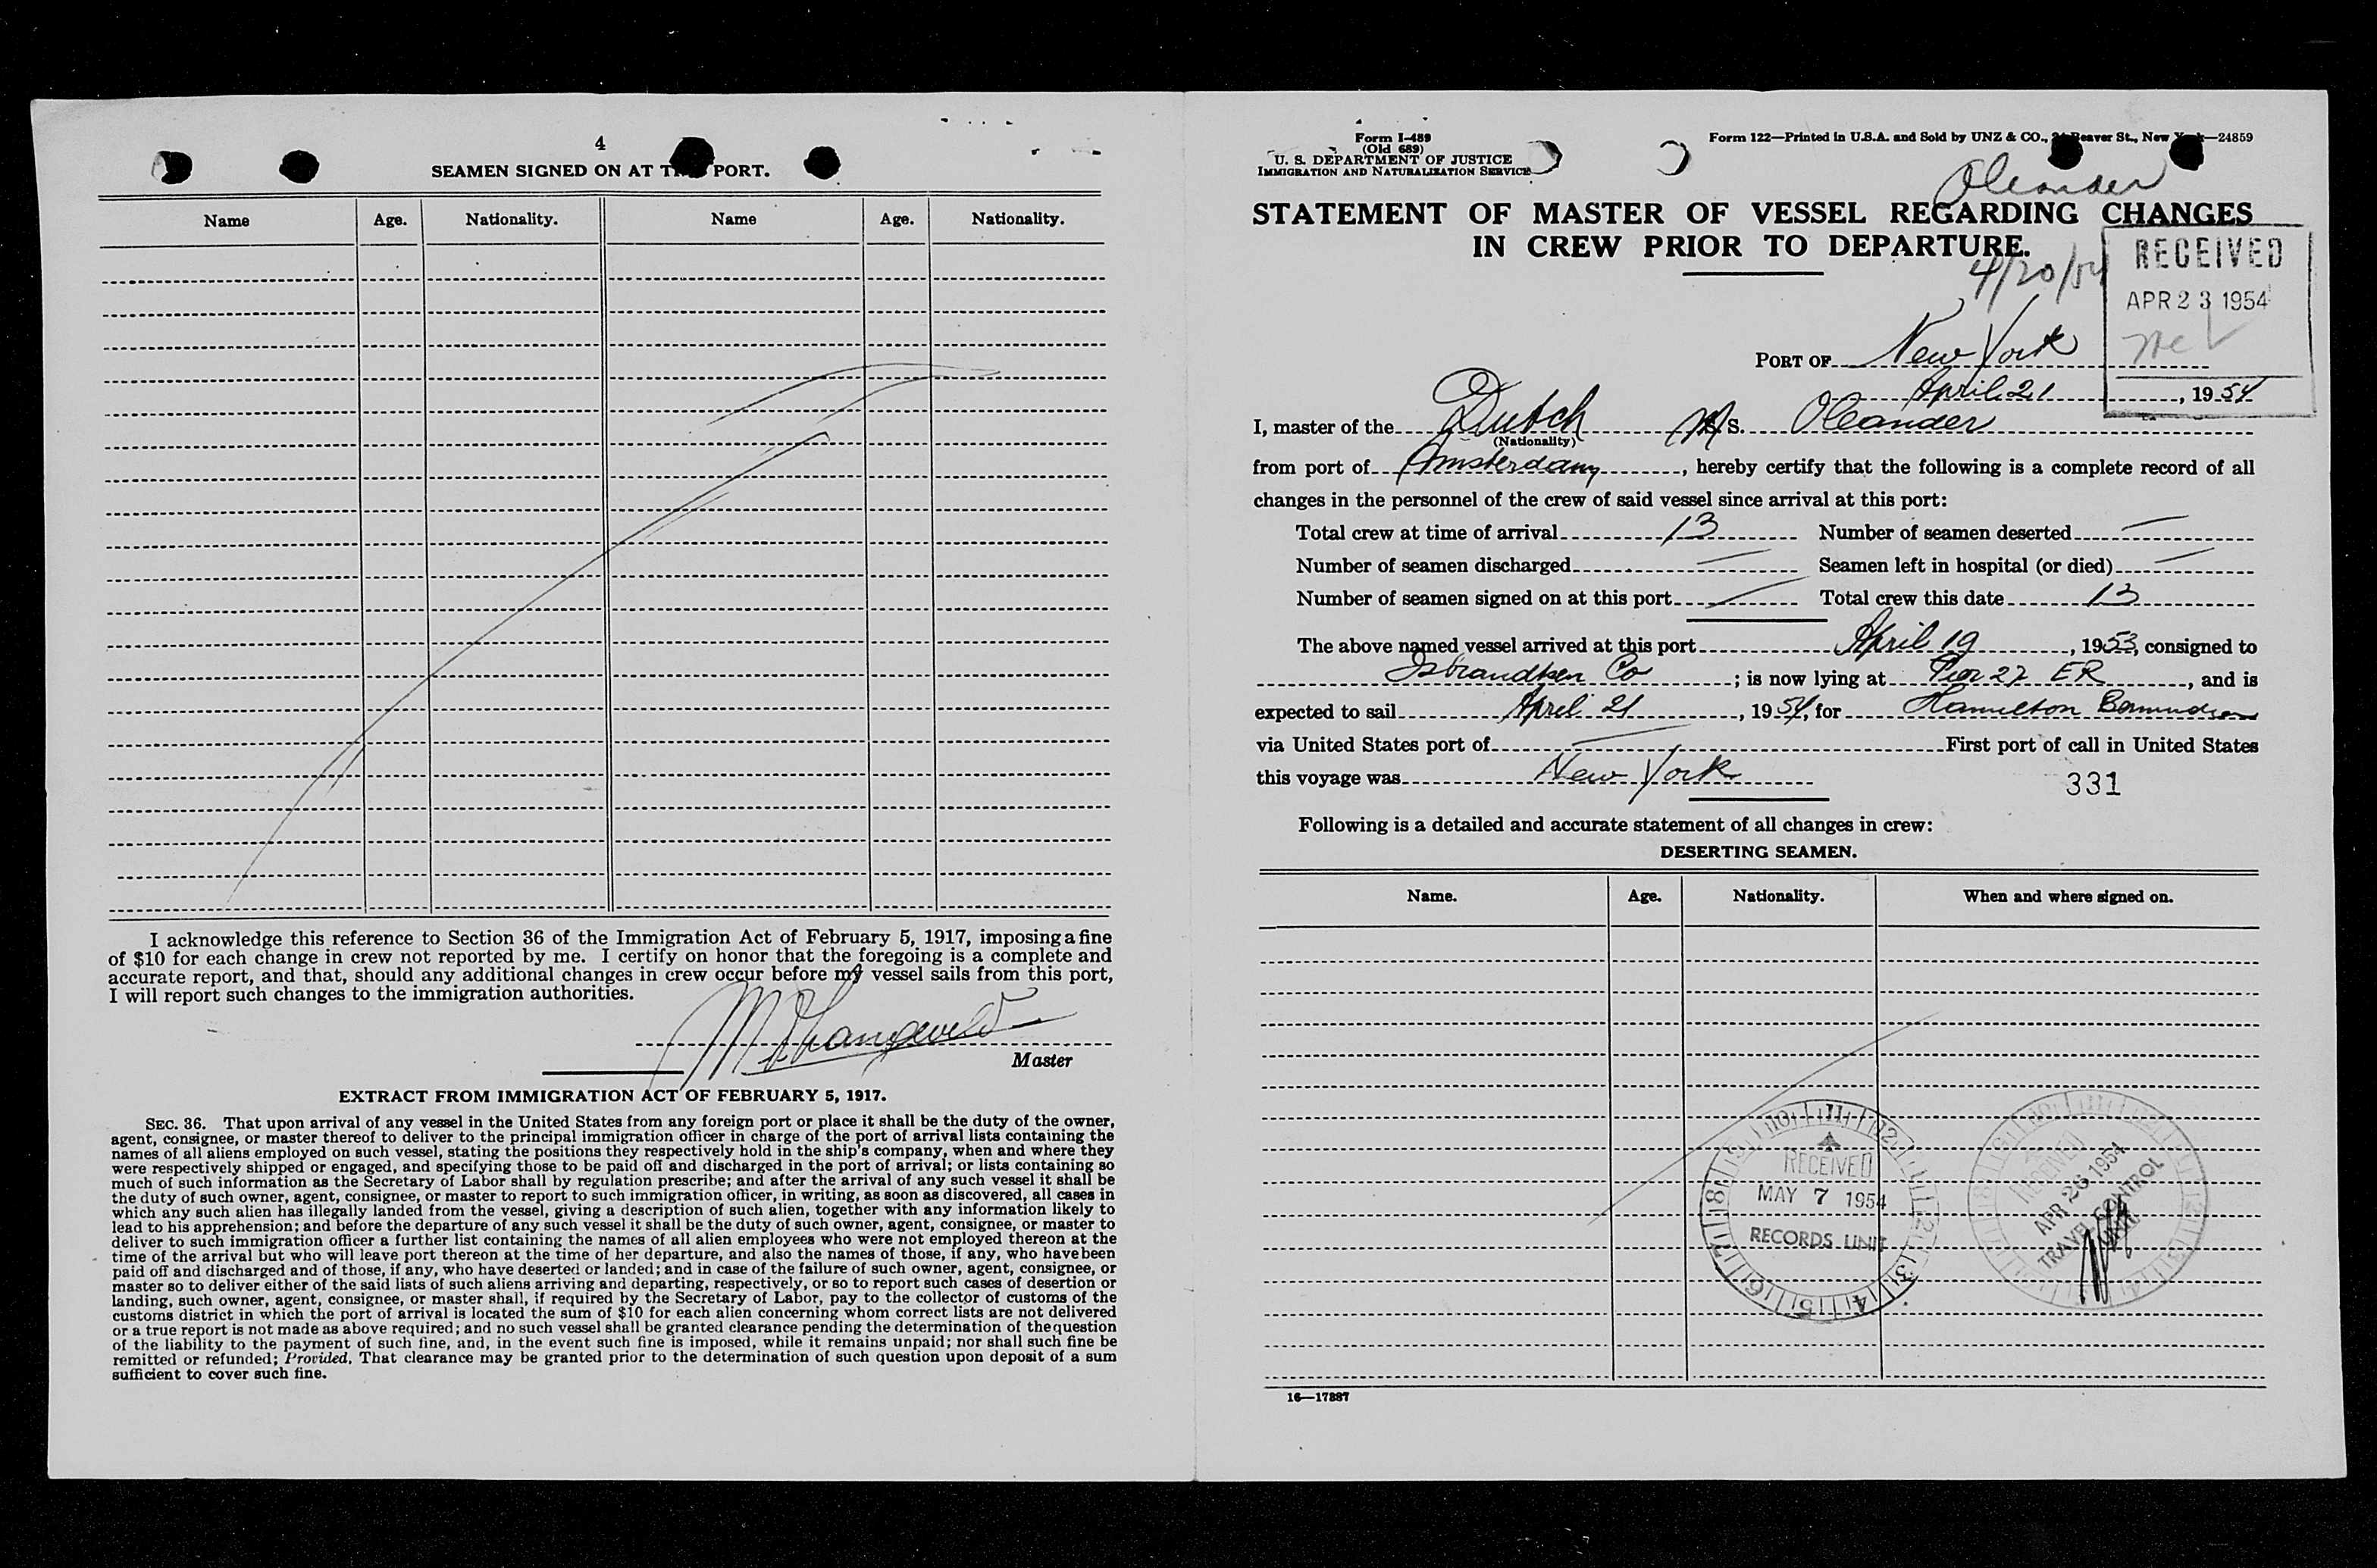 4
SEAMEN SIGNED ON AT PORT.
Name Age. Nationality. Name Age. Nationality.
I acknowledge this reference to Section 36 of the Immigration Act of February 5, 1917, imposing a fine
of $10 for each change in crew not reported by me. I certify on honor that the foregoing is a complete and
accurate report, and that, should any additional changes in crew occur before my vessel sails from this port,
I will report such changes to the immigration authorities.
Master
EXTRACT FROM IMMIGRATION ACT OF FEBRUARY 5, 1917.
SEC. 36. That upon arrival of any vessel in the United States from any foreign port or place it shall be the duty of the owner,
agent, consignee, or master thereof to deliver to the principal immigration officer in charge of the port of arrival lists containing the
names of all aliens employed on such vessel, stating the positions they respectively hold in the ship's company, when and where they
were respectively shipped or engaged, and specifying those to be paid off and discharged in the port of arrival; or lists containing so
much of such information as the Secretary of Labor shall by regulation prescribe; and after the arrival of any such vessel it shall be
the duty of such owner, agent, consignee, or master to report to such immigration officer, in writing, as soon as discovered, all cases in
which any such alien has illegally landed from the vessel, giving a description of such alien, together with any information likely to
lead to his apprehension; and before the departure of any such vessel it shall be the duty of such owner, agent, consignee, or master to
deliver to such immigration officer a further list containing the names of all alien employees who were not employed thereon at the
time of the arrival but who will leave port thereon at the time of her departure, and also the names of those, if any, who have been
paid off and discharged and of those, if any, who have deserted or landed; and in case of the failure of such owner, agent, consignee, or
master so to deliver either of the said lists of such aliens arriving and departing, respectively, or so to report such cases of desertion or
landing, such owner, agent, consignee, or master shall, if required by the Secretary of Labor, pay to the collector of customs of the
customs district in which the port of arrival is located the sum of $10 for each alien concerning whom correct lists are not delivered
or a true report is not made as above required; and no such vessel shall be granted clearance pending the determination of the question
of the liability to the payment of such fine, and, in the event such fine is imposed, while it remains unpaid; nor shall such fine be
remitted or refunded; Provided, That clearance may be granted prior to the determination of such question upon deposit of a sum
sufficient to cover such fine.
Form I-489
(Old 689)
U. S. DEPARTMENT OF JUSTICE
IMMIGRATION AND NATURALIZATION SERVICE
Form 122—Printed in U.S.A. and Sold by UNZ & CO., Beaver St., New York—24859
Oleander
STATEMENT OF MASTER OF VESSEL REGARDING CHANGES
IN CREW PRIOR TO DEPARTURE.
4/20/54
RECEIVED
APR 23 1954
PORT OF New York
April 21, 1954
I, master of the Dutch M S. Oleander
(Nationality)
from port of Amsterdam, hereby certify that the following is a complete record of all
changes in the personnel of the crew of said vessel since arrival at this port:
Total crew at time of arrival 13 Number of seamen deserted —
Number of seamen discharged — Seamen left in hospital (or died) —
Number of seamen signed on at this port — Total crew this date 13
The above named vessel arrived at this port April 19, 1953, consigned to
Isbrandtsen Co; is now lying at Pier 27 ER, and is
expected to sail April 21, 1954, for Hamilton Bermuda
via United States port of — First port of call in United States
this voyage was New York
331
Following is a detailed and accurate statement of all changes in crew:
DESERTING SEAMEN.
Name. Age. Nationality. When and where signed on.
RECEIVED
MAY 7 1954
RECORDS UNIT
RECEIVED
APR 26 1954
TRAVEL CONTROL
UNIT
16—17887